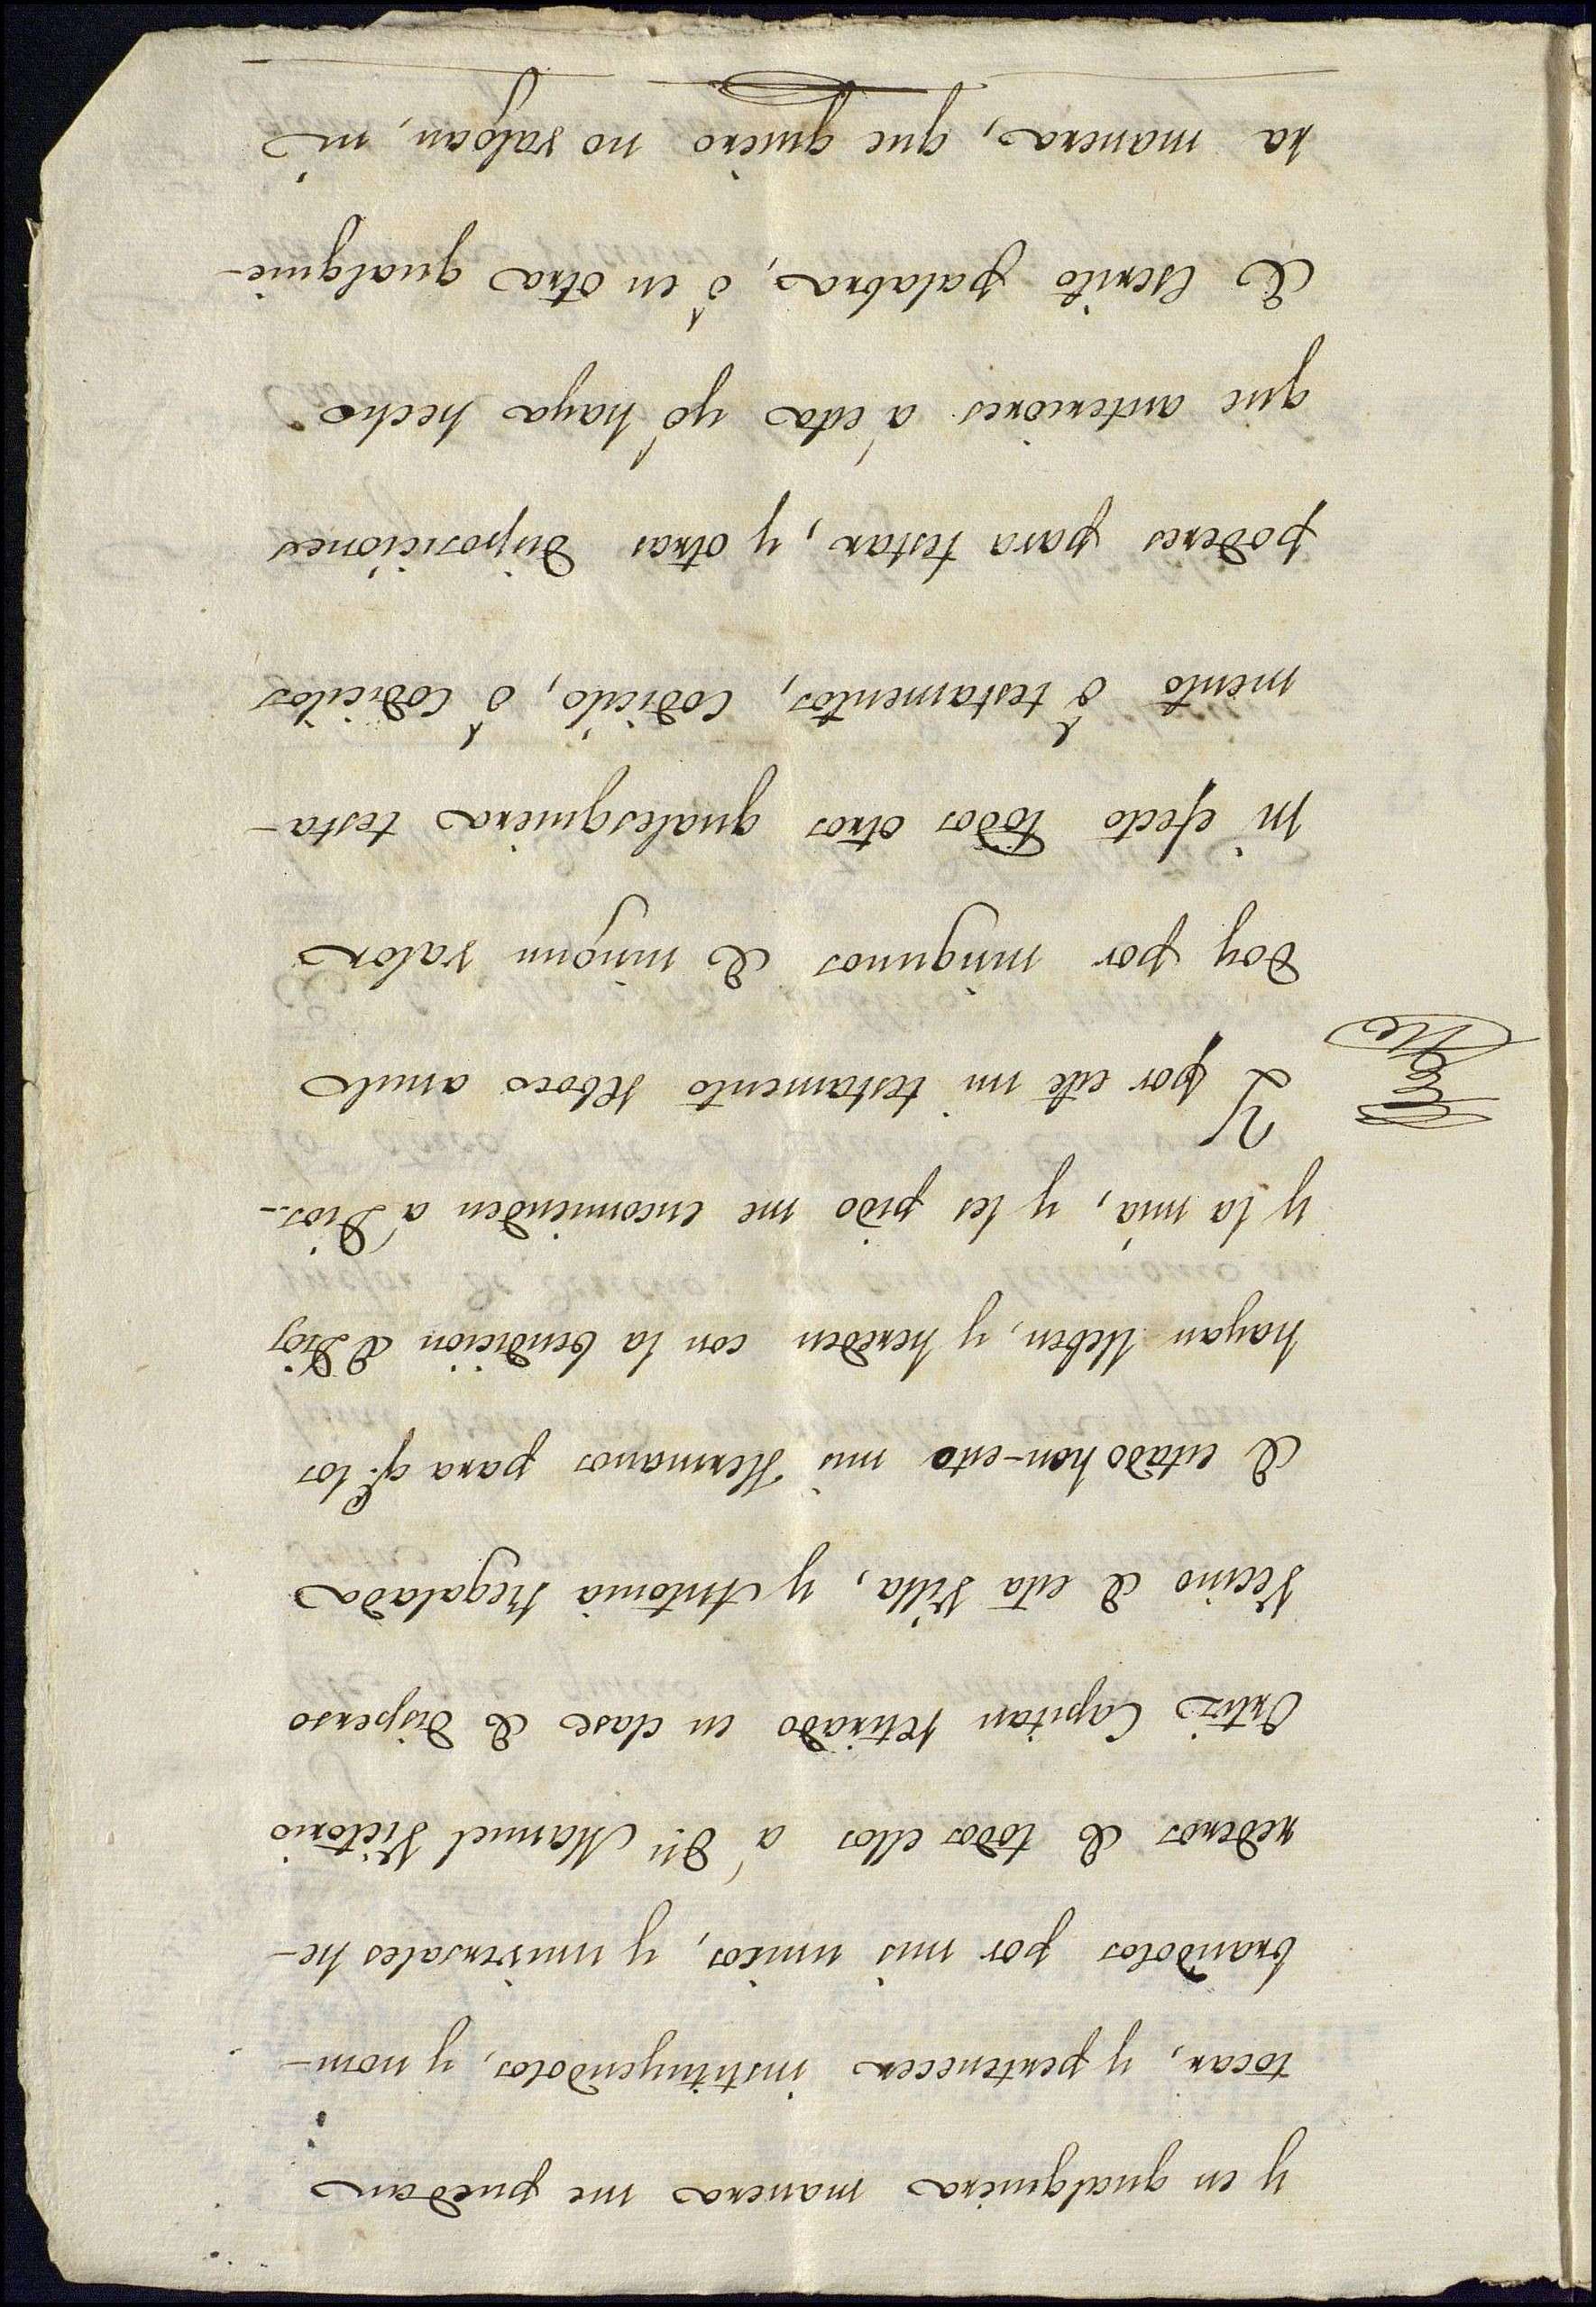 y en qualquiera manera me puedan
tocar, y pertenecer instituyendolos, y nom-
brandolos por mis unicos, y universales he-
rederos de todos ellos á Dn. Manuel Victorio
Ortiz Capitan retirado en clase de disperso
Vecino de esta Villa, y Antonia Regalada
de estado hon-esto mis Hermanos para qe. los
hayan lleben, y hereden con la bendicion de Dios
y la mia, y les pido me encomienden á Dios..
Y por este mi testamento reboco anulo
doy por ningunos de ningun valor
ni efecto todos otros qualesquiera testa-
mento ó testamentos, Codicilo, ó Codicilos
poderes para testar, y otras disposiciones
que anteriores á esta yó haya hecho
de escrito palabra, ó en otra qualquie-
ra manera, que quiero no valgan, ni